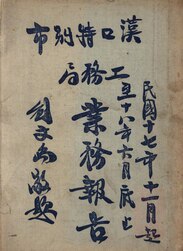 漢口特別市
民國十七年十一月起
至十八年六月底止
工務局
業務報告